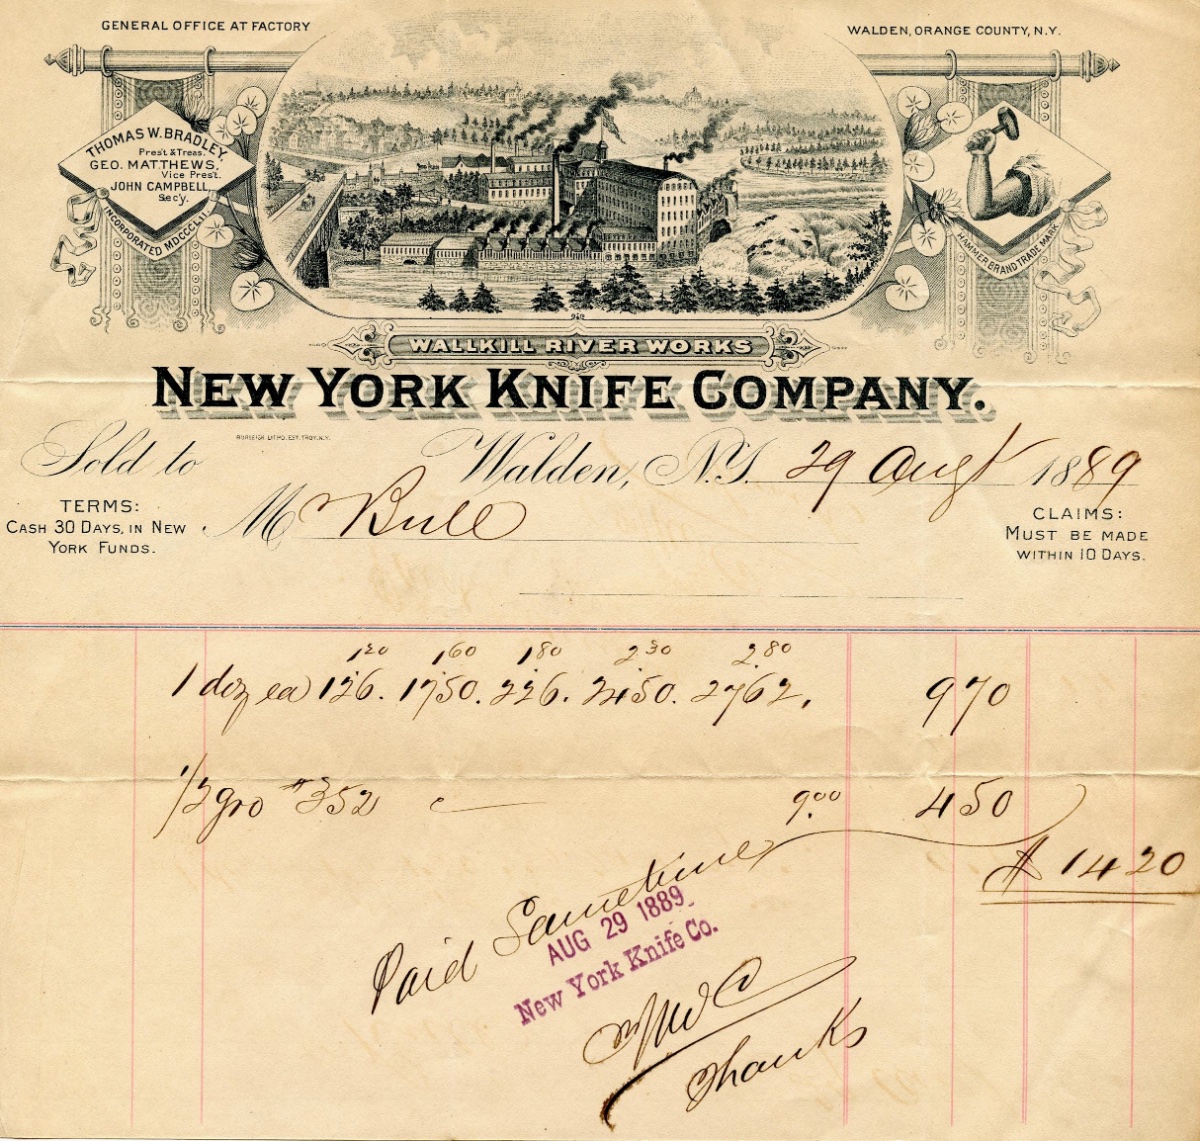 GENERAL OFFICE AT FACTORY
WALDEN, ORANGE COUNTY, N.Y.
THOMAS W. BRADLEY,
Pres't & Treas.
GEO. MATTHEWS,
Vice Pres't.
JOHN CAMPBELL,
Sec'y.
INCORPORATED MDCCCLII.
HAMMER BRAND TRADE MARK
WALLKILL RIVER WORKS
NEW YORK KNIFE COMPANY.
BURLEIGH LITHO. EST. TROY, N.Y.
Sold to
Walden, N.Y. 29 Augt 1889
M Bull
TERMS:
CASH 30 DAYS, IN NEW
YORK FUNDS.
CLAIMS:
MUST BE MADE
WITHIN 10 DAYS.
1 20 1 60 1 80 2 30 2 80
1 doz ea 126. 1750. 226. 2450. 2762. 9 70
1/2 gro #352 9.00 4 50
$ 14 20
Paid Sametime
AUG 29 1889
New York Knife Co.
Thanks